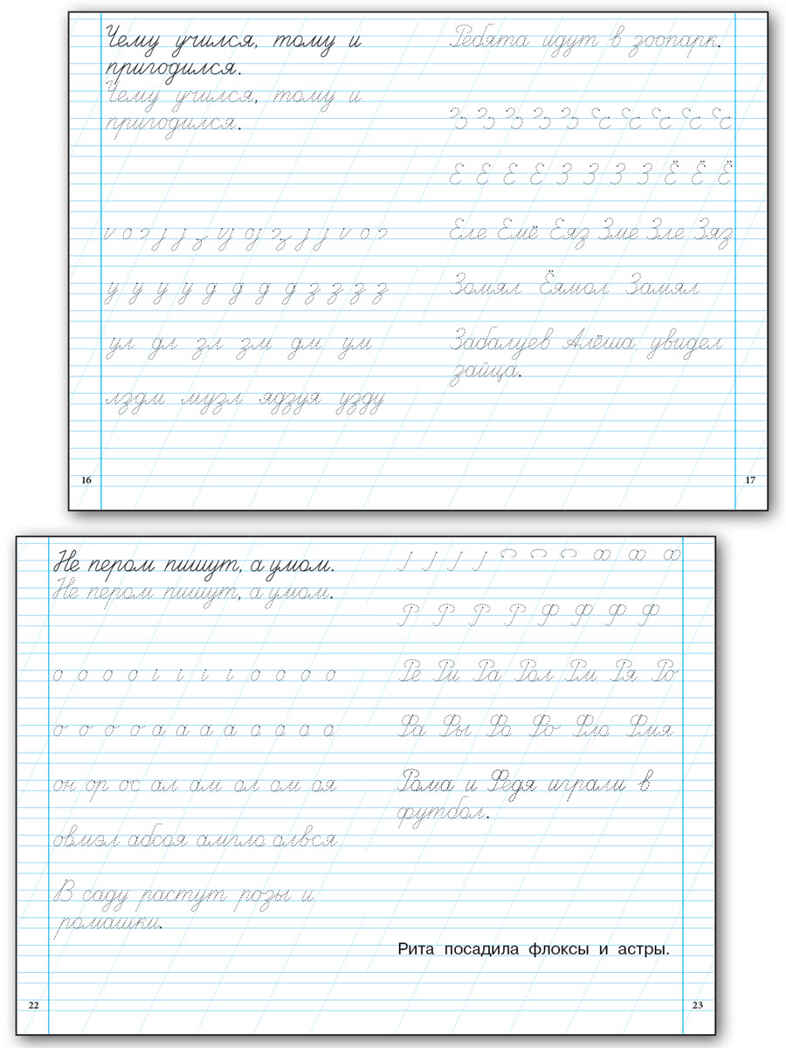 Чему учился, тому и
пригодился.
Чему учился, тому и
пригодился.
у у у у д д д д з з з з
ул дл зл зм дм ум
лздм музл ядзуя узду
16
Ребята идут в зоопарк.
Е Е Е Е З З З З Ё Ё Ё
Еле Емё Еяз Зме Зле Зяз
Зомял Ёямол Замял
Забалуев Алёша увидел
зайца.
17
Не пером пишут, а умом.
Не пером пишут, а умом.
о о о о а а а а о о о о
он ор ос ал ам ол ом оя
абсоя
В саду растут розы и
ромашки.
22
Р Р Р Р Ф Ф Ф Ф
Ре Ри Ра Рол Рм Ря Ро
Рома и Федя играли в
футбол.
Рита посадила флоксы и астры.
23